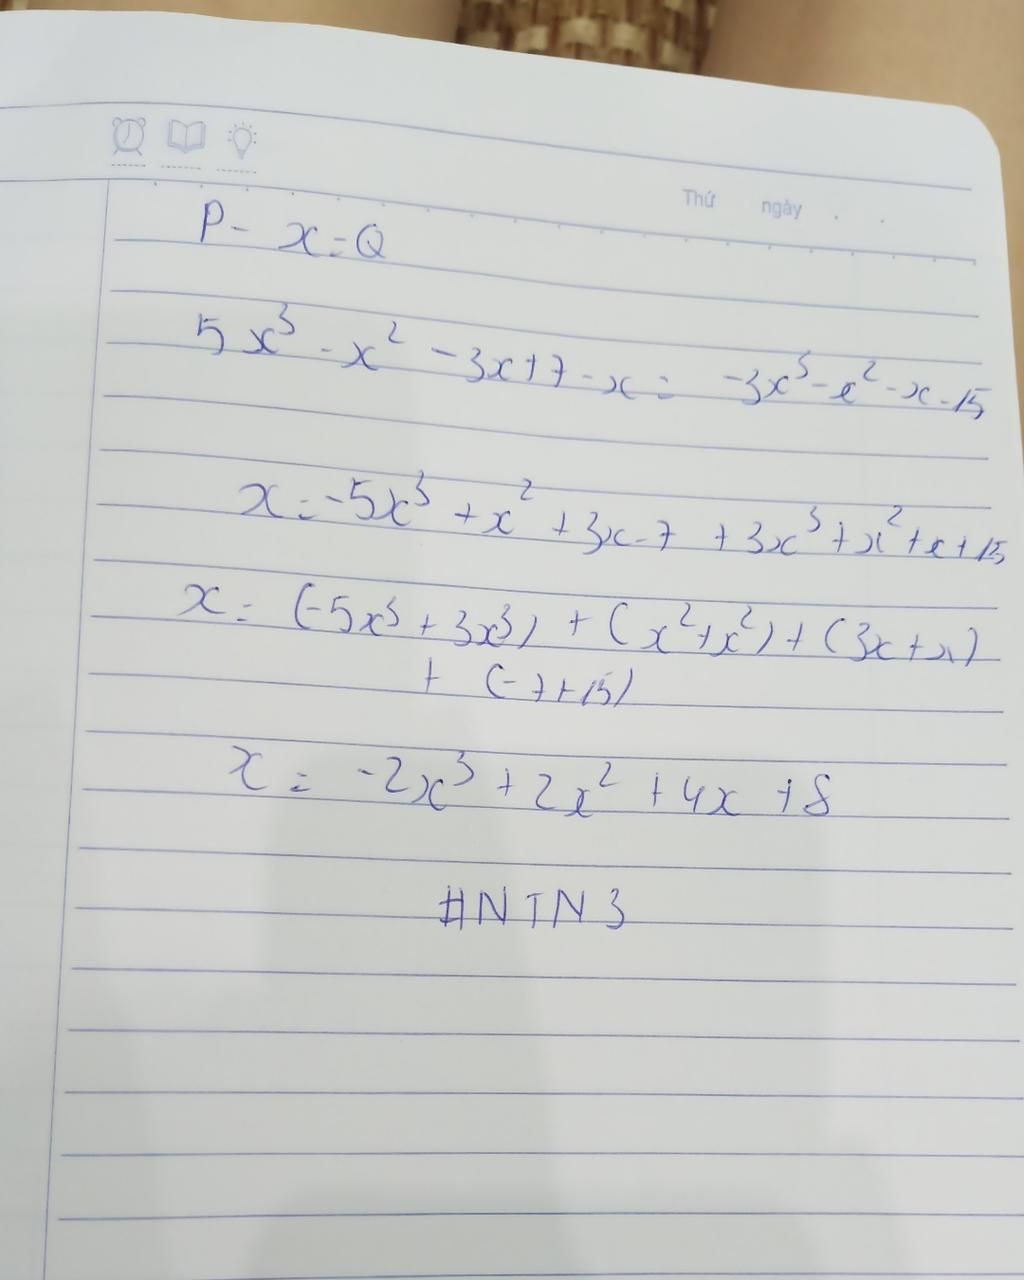 Thứ ngày . .
P - x = Q
5x³ - x² - 3x + 7 - x = -3x³ - x² - x - 15
x = -5x³ + x² + 3x - 7 + 3x³ + x² + x + 15
x = (-5x³ + 3x³) + (x² + x²) + (3x + x)
+ (-7 + 15)
x = -2x³ + 2x² + 4x + 8
#NTN3